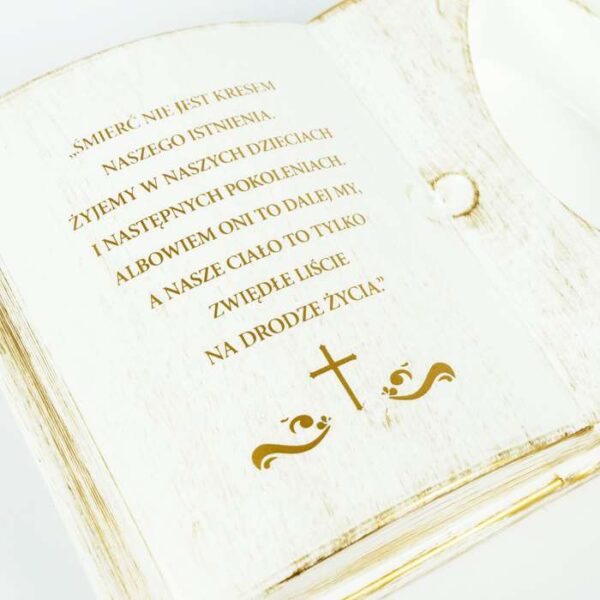 „ŚMIERĆ NIE JEST KRESEM
NASZEGO ISTNIENIA.
ŻYJEMY W NASZYCH DZIECIACH
I NASTĘPNYCH POKOLENIACH.
ALBOWIEM ONI TO DALEJ MY,
A NASZE CIAŁO TO TYLKO
ZWIĘDŁE LIŚCIE
NA DRODZE ŻYCIA.”